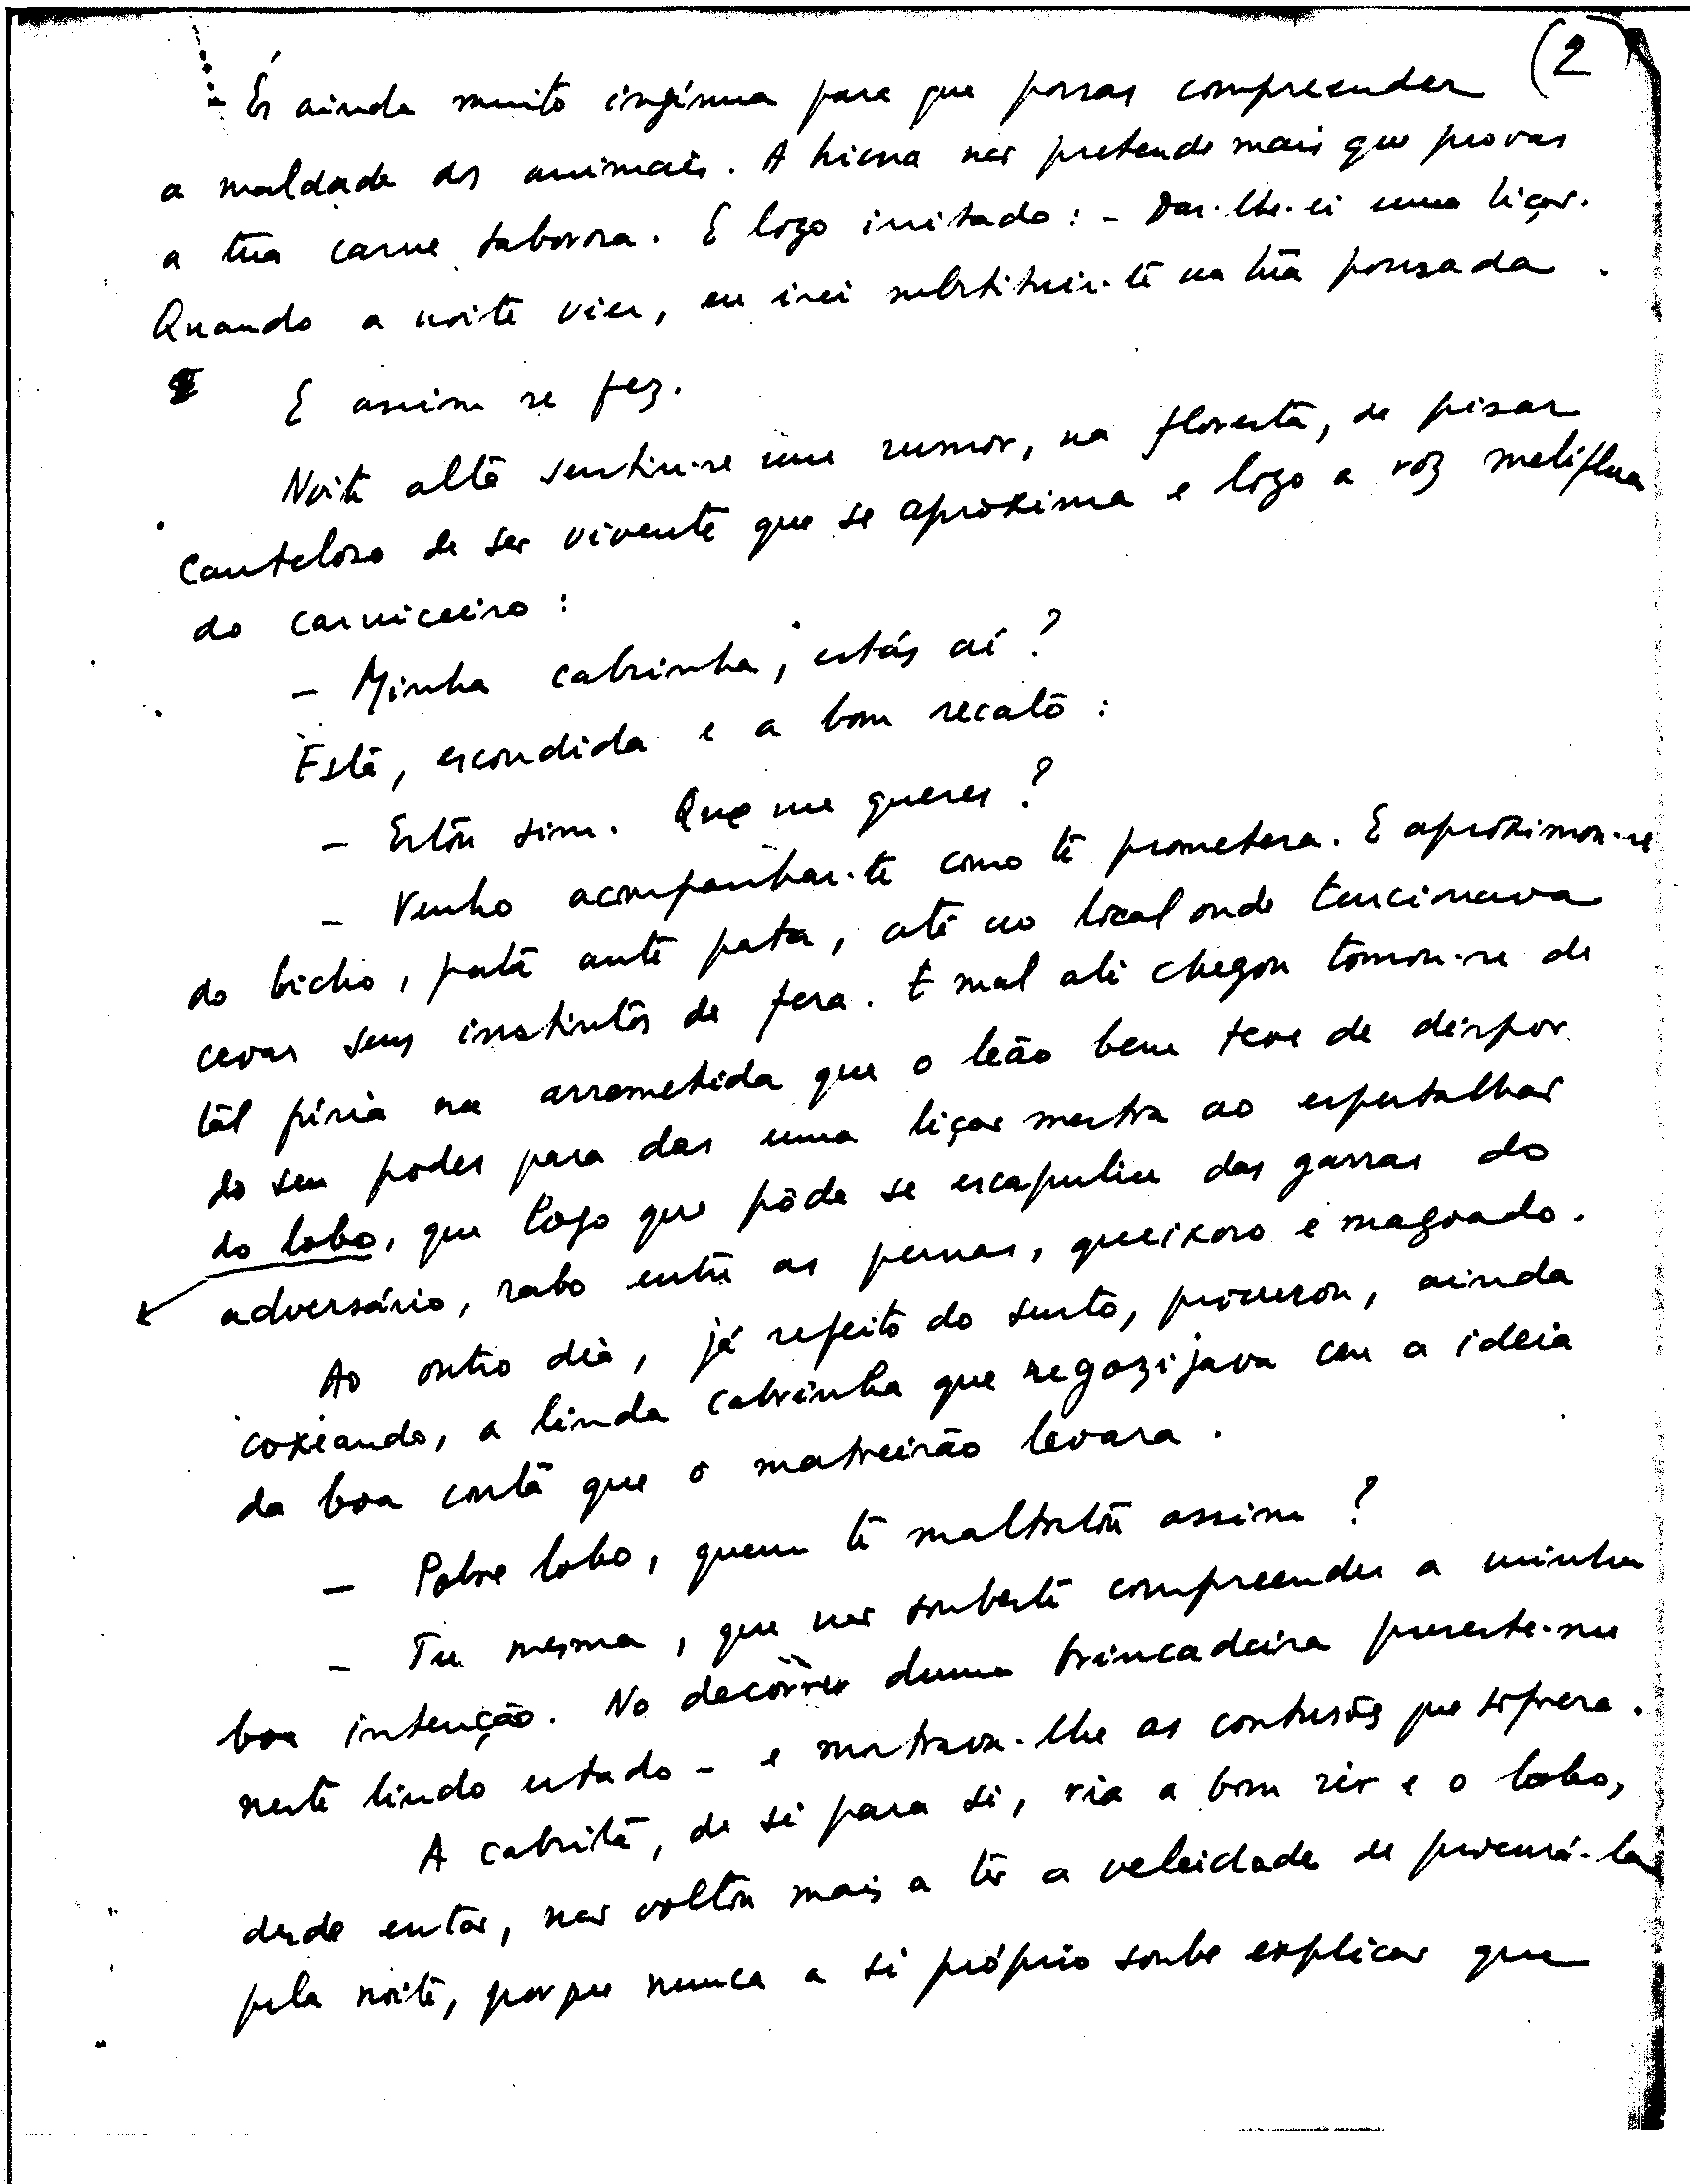 (2
- És ainda muito ingénua para que possas compreender
a maldade dos animais. A hiena não pretende mais que provar
a tua carne saborosa. E logo irritado: - Dar-lhe-ei uma lição.
Quando a noite vier, eu irei substituir-te na tua pousada.
E assim se fez.
Noite alta sentiu-se um rumor, na floresta, de pisar
cauteloso de ser vivente que se aproxima e logo a voz melíflua
do carniceiro:
- Minha cabrinha, estás aí?
Está, escondida e a bom recato:
- Estou sim. Que me queres?
- Venho acompanhar-te como te prometera. E aproximou-se
do bicho, pata ante pata, até ao local onde tencionava
cevar seus instintos de fera. E mal ali chegou tomou-se de
tal fúria na arremetida que o leão bem teve de dispor
do seu poder para dar uma lição mestra ao espertalhão
do lobo, que logo que pôde se escapuliu das garras do
adversário, rabo entre as pernas, queixoso e magoado.
Ao outro dia, já refeito do susto, procurou, ainda
coxeando, a linda cabrinha que regozijava com a ideia
da boa conta que o matreirão levara.
- Pobre lobo, quem te maltratou assim?
- Tu mesma, que não soubeste compreender a minha
boa intenção. No decorrer duma brincadeira puseste-me
neste lindo estado - e mostrava-lhe as contusões que sofrera.
A cabrita, de si para si, ria a bom rir e o lobo,
desde então, não voltou mais a ter a veleidade de procurá-la
pela noite, porque nunca a si próprio soube explicar que